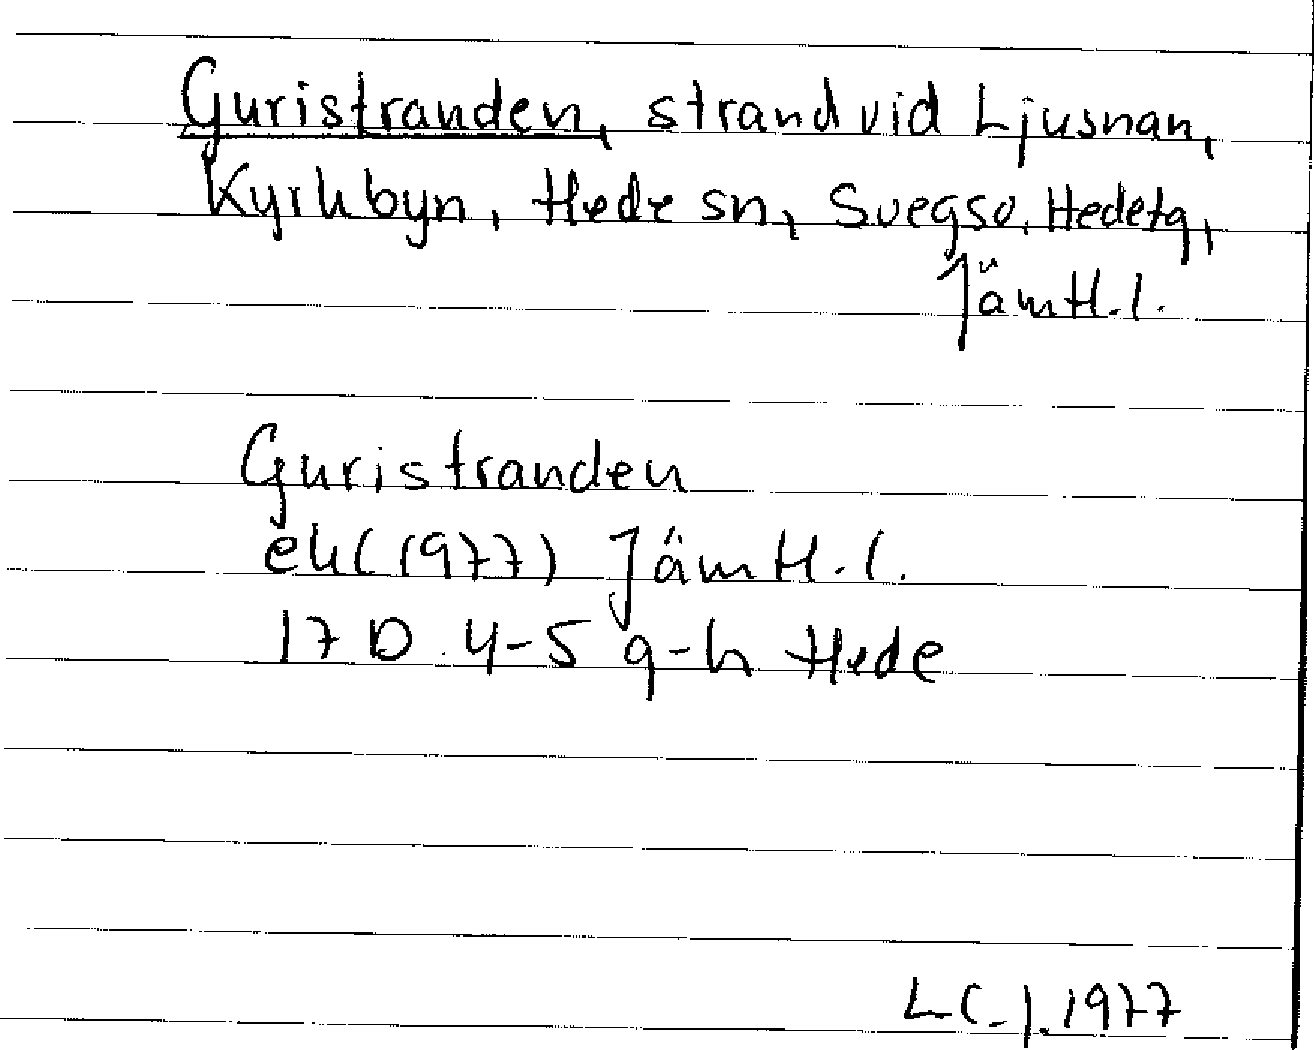 Guristranden, strand vid Ljusnan,
Kyrkbyn, Hede sn, Svegs o. Hede tg,
Jämtl. l.
Guristranden
ek (1977) Jämtl. l.
17 D 4-5 g-h Hede
LC-J. 1977